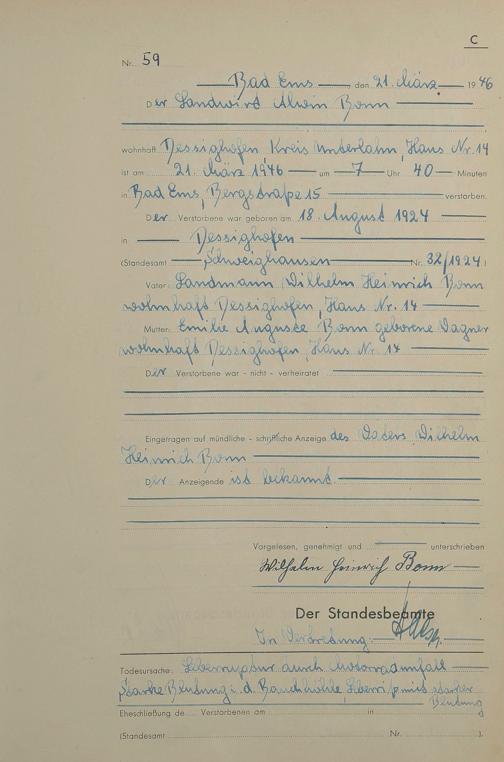 C
Nr. 59
Bad Ems, den 21. März 1946
Der Landwird Alwin Bonn
wohnhaft Dessighofen Kreis Unterlahn, Haus Nr. 14
ist am 21. März 1946 um 7 Uhr 40 Minuten
in Bad Ems, Bergstraße 15 verstorben.
Der Verstorbene war geboren am 18. August 1924
in Dessighofen
(Standesamt Schweighausen Nr. 32/1924)
Vater: Landmann Wilhelm Heinrich Bonn
wohnhaft Dessighofen, Haus Nr. 14
Mutter: Emilie Auguste Bonn geborene Wagner
wohnhaft Dessighofen, Haus Nr. 14
Der Verstorbene war - nicht - verheiratet
Eingetragen auf mündliche - schriftliche Anzeige des Vaters Wilhelm
Heinrich Bonn
Der Anzeigende ist bekannt.
Vorgelesen, genehmigt und unterschrieben
Wilhelm Heinrich Bonn
Der Standesbeamte
In Vertretung:
Todesursache: Leberruptur durch Motorradunfall
starke Blutung i. d. Bauchhöhle, mit starker
Blutung
Eheschließung de Verstorbenen am in
(Standesamt Nr. ).